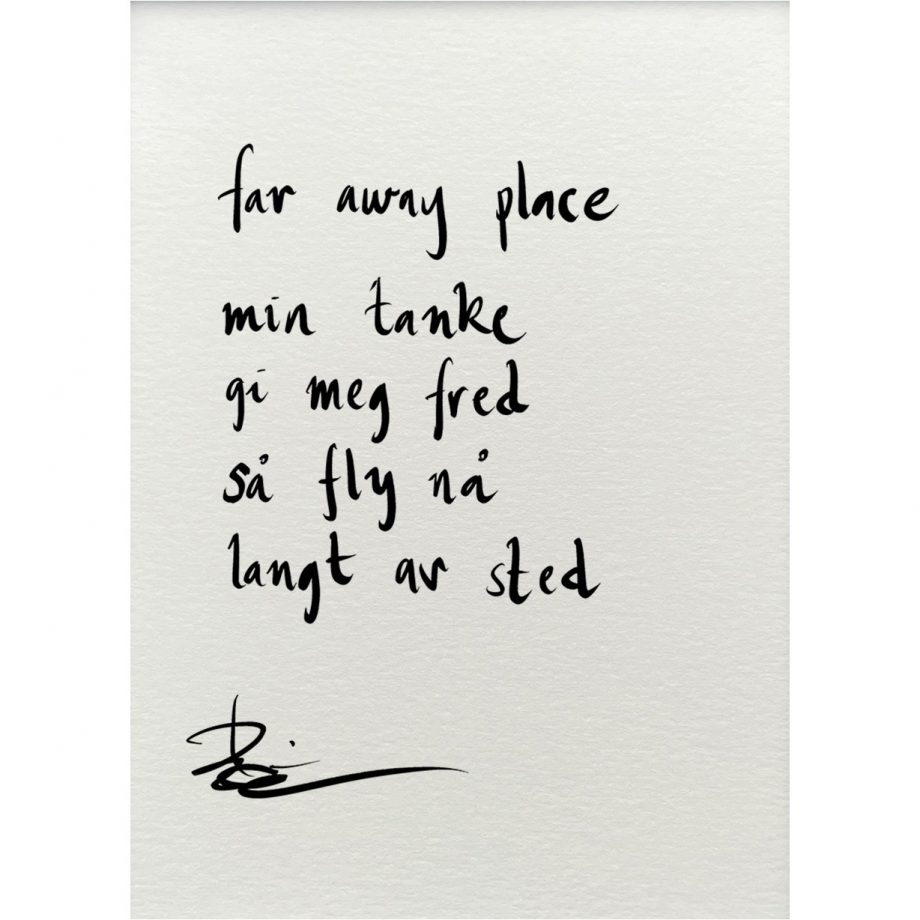 far away place
min tanke
gi meg fred
så fly nå
langt av sted